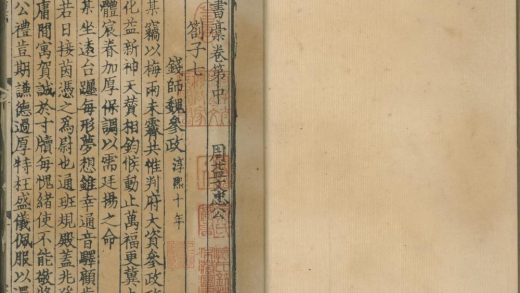 書藁卷第中
周益文忠公
劄子七
錢師魏參政 淳熙十年
某竊以梅雨未霽共惟判府大資參政
化益新神天賛相鈞候動止萬福更冀
體宸眷加厚保調以需廷揚之命
某坐遠台躔每形夢想雖幸通音驛顧
若日接茵憑之為尉也通班規殿蓋兆
庸聞寓賀誠於寸牘每愧緒使不能敬
公禮豈期謙德過厚特枉盛儀佩服以還